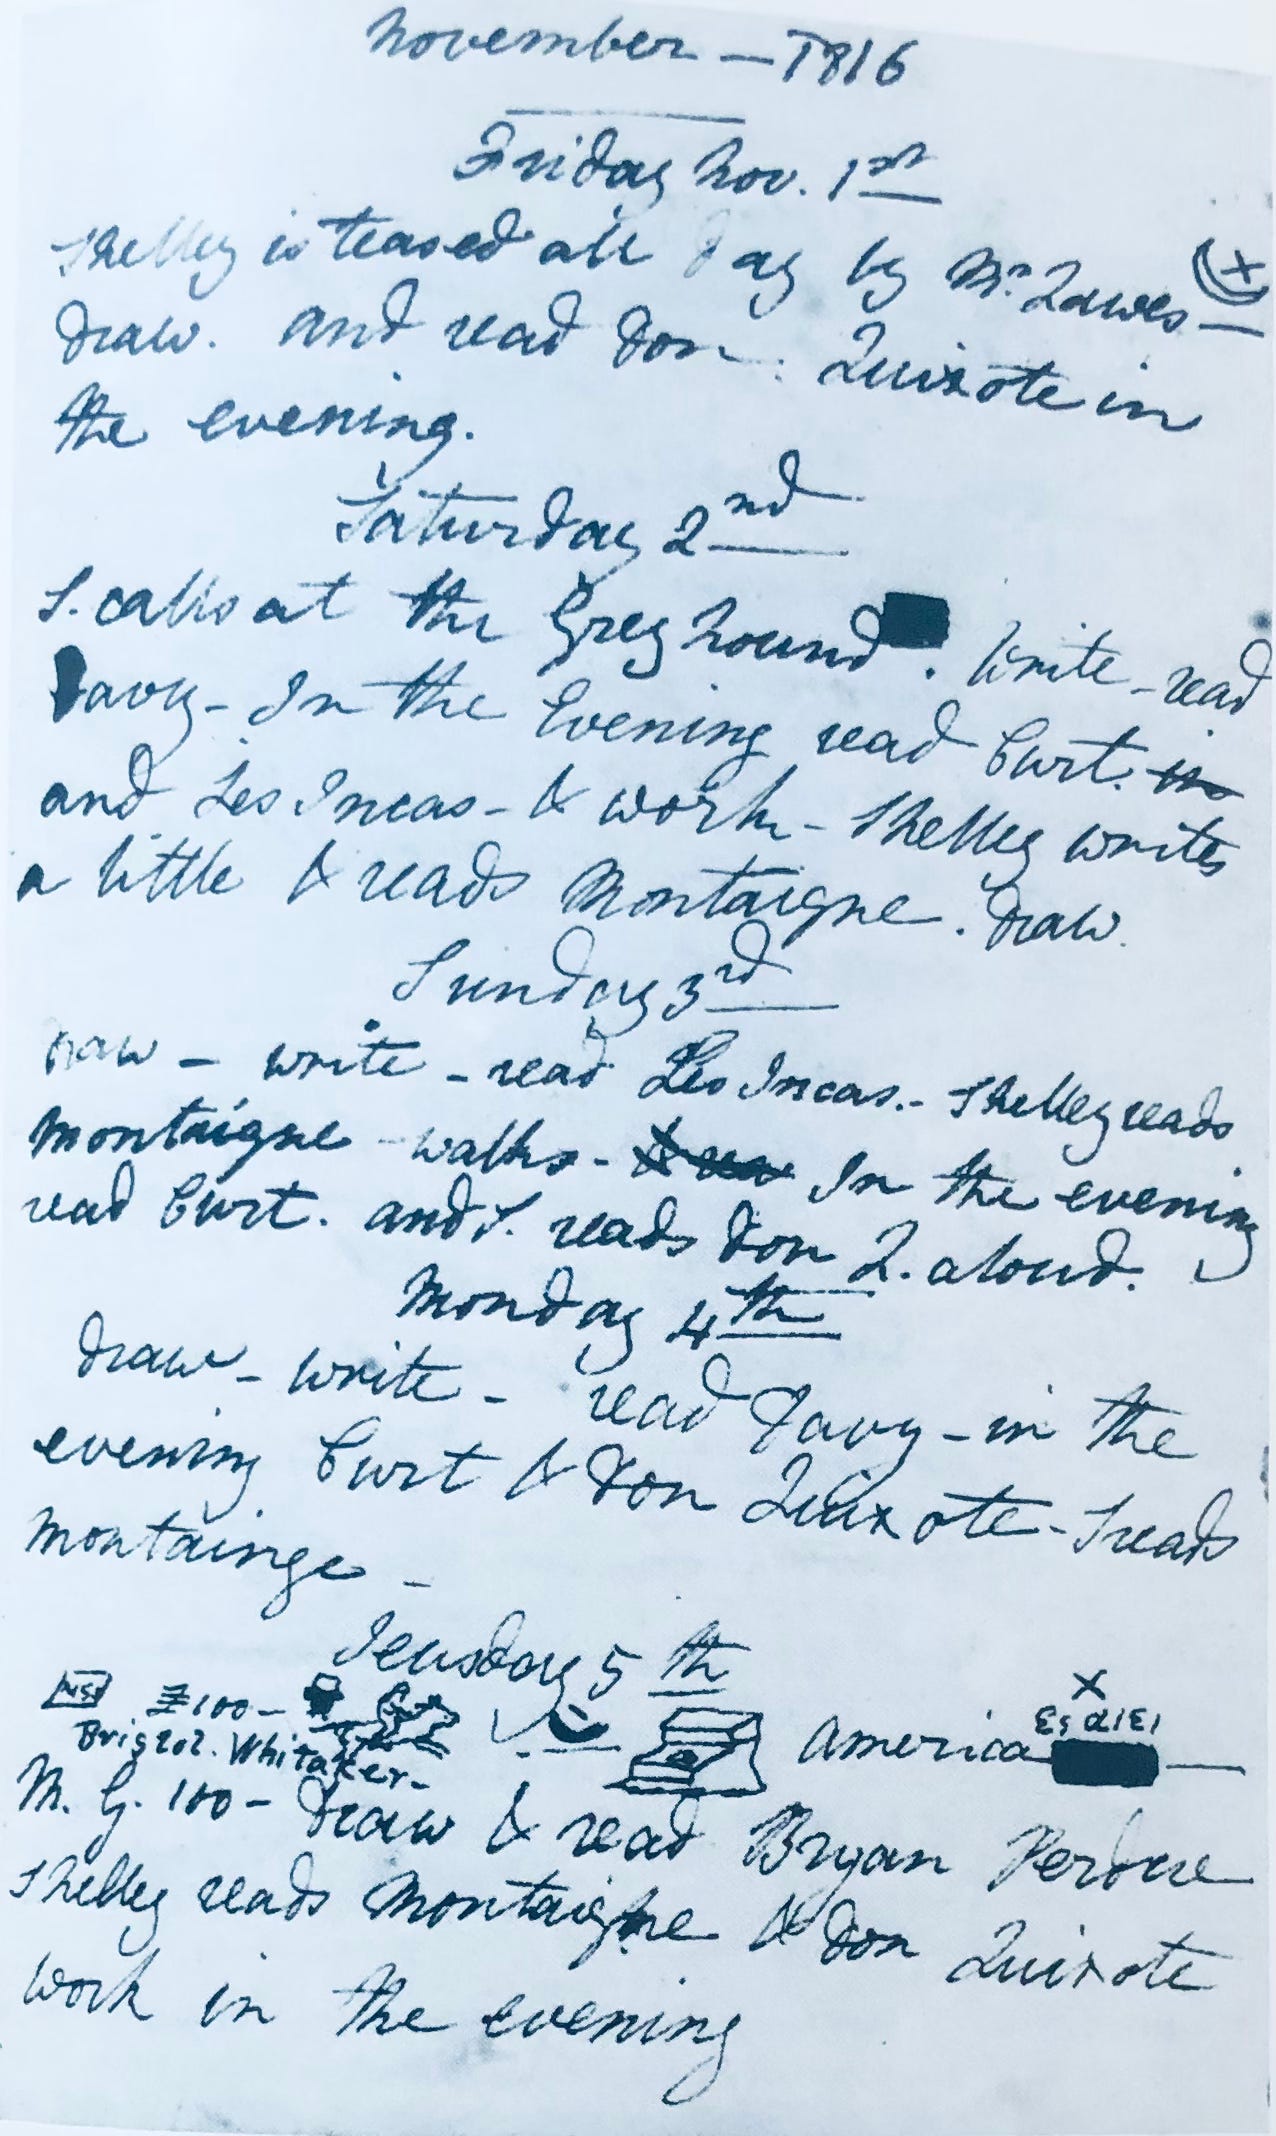 November — 1816
Friday Nov. 1st
Shelley is teased all day by Mr Lawes —
Draw. and read Don. Quixote in
the evening.
Saturday 2nd
S. calls at the Greyhound. Write - read
Davy - In the Evening read Curt. in
and Les Incas - & work - Shelley writes
a little & reads Montaigne. Draw.
Sunday 3rd
Draw - write - read Les Incas. - Shelley reads
Montaigne - walks - In the evening
read Curt. and S. reads Don Q. aloud.
Monday 4th
Draw - write - read Davy - in the
evening Curt & Don Quixote - S reads
Montainge -
Teusday 5th
100 - America
Bristol. Whitaker -
M. G. 100 - Draw & read Bryan Perdue
Shelley reads Montaigne & Don Quixote
work in the evening